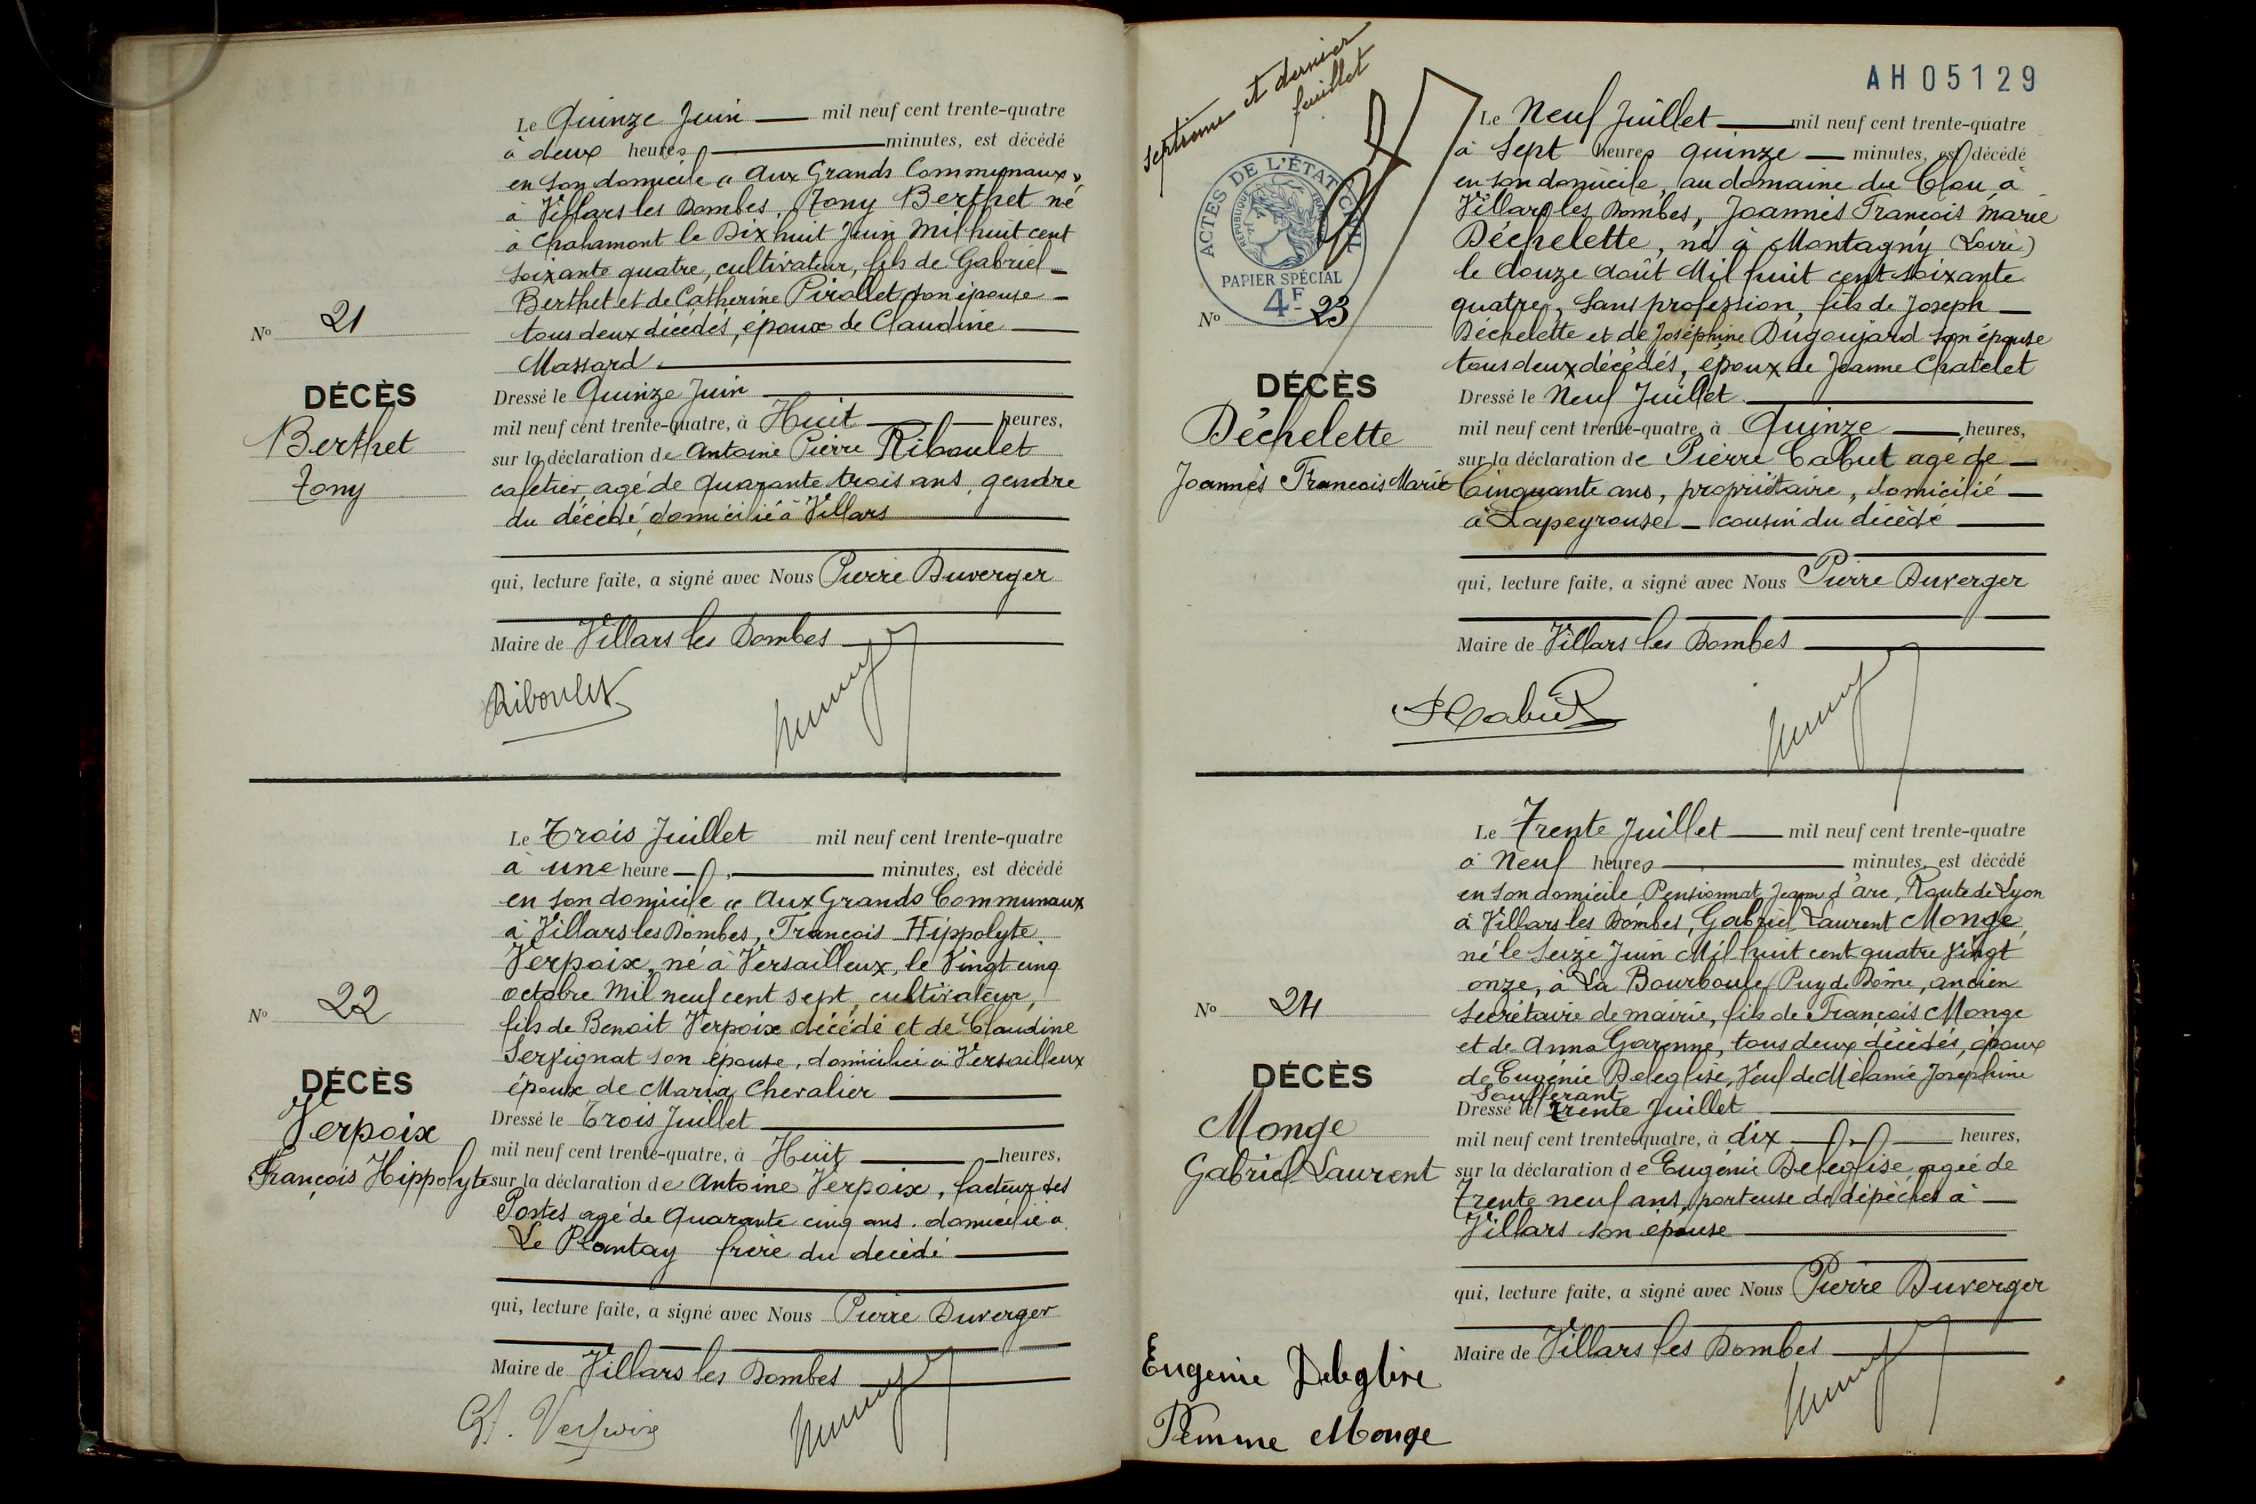 Le Quinze Juin mil neuf cent trente-quatre
à deux heures minutes, est décédé
en son domicile "Aux Grands Communaux",
à Villars les Dombes, Tony Berthet né
à Chalamont le Dix huit Juin Mil huit cent
soixante quatre, cultivateur, fils de Gabriel
Berthet et de Catherine Pirollet son épouse
tous deux décédés, époux de Claudine
Massard.
Dressé le Quinze Juin
mil neuf cent trente-quatre, à Huit heures,
sur la déclaration de Antoine Pierre Riboulet
cafetier, agé de Quarante trois ans, gendre
du décédé, domicilié à Villars
qui, lecture faite, a signé avec Nous Pierre Duverger
Maire de Villars les Dombes
Riboulet
No 21
DÉCÈS
Berthet
Tony
Le Trois Juillet mil neuf cent trente-quatre
à une heure minutes, est décédé
en son domicile "Aux Grands Communaux
à Villars les Dombes, François Hippolyte
Verpoix, né à Versailleux, le Vingt cinq
octobre Mil neuf cent sept, cultivateur,
fils de Benoit Verpoix décédé et de Claudine
Servignat son épouse, domiciliée à Versailleux
époux de Maria Chevalier
Dressé le Trois Juillet
mil neuf cent trente-quatre, à Huit heures,
sur la déclaration de Antoine Verpoix, facteur des
Postes agé de Quarante cinq ans. domicilié à
Le Plantay frère du décédé
qui, lecture faite, a signé avec Nous Pierre Duverger
Maire de Villars les Dombes
Verpoix
No 22
DÉCÈS
Verpoix
François Hippolyte
septième et dernier
feuillet
AH05129
ACTES DE L'ÉTAT CIVIL
PAPIER SPÉCIAL
4F
Le Neuf Juillet mil neuf cent trente-quatre
à Sept heures quinze minutes, est décédé
en son domicile, au domaine du Clou, à
Villars les Dombes, Joannès François Marie
Déchelette, né à Montagny (Loire)
le douze Août Mil huit cent soixante
quatre, sans profession, fils de Joseph
Déchelette et de Joséphine Dugoujard son épouse
tous deux décédés, époux de Jeanne Chatelet
Dressé le Neuf Juillet
mil neuf cent trente-quatre, à Quinze heures,
sur la déclaration de Pierre Cabut agé de
Cinquante ans, propriétaire, domicilié
à Lapeyrouse cousin du décédé
qui, lecture faite, a signé avec Nous Pierre Duverger
Maire de Villars les Dombes
PCabut
No 23
DÉCÈS
Déchelette
Joannès François Marie
Le Trente Juillet mil neuf cent trente-quatre
à Neuf heures minutes, est décédé
en son domicile, Pensionnat Jeanne d'arc, Route de Lyon
à Villars les Dombes, Gabriel Laurent Monge
né le Seize Juin Mil huit cent quatre vingt
onze, à La Bourboule Puy de Dôme, ancien
secrétaire de mairie, fils de François Monge
et de Anna Garenne, tous deux décédés, époux
de Eugénie Deleglise, Veuf de Mélanie Joséphine
Soufferant
Dressé le trente Juillet
mil neuf cent trente-quatre, à dix heures,
sur la déclaration de Eugénie Deleglise agée de
Trente neuf ans, porteuse de dépêches à
Villars son épouse
qui, lecture faite, a signé avec Nous Pierre Duverger
Maire de Villars les Dombes
No 24
DÉCÈS
Monge
Gabriel Laurent
Eugenie Deleglise
Femme Monge